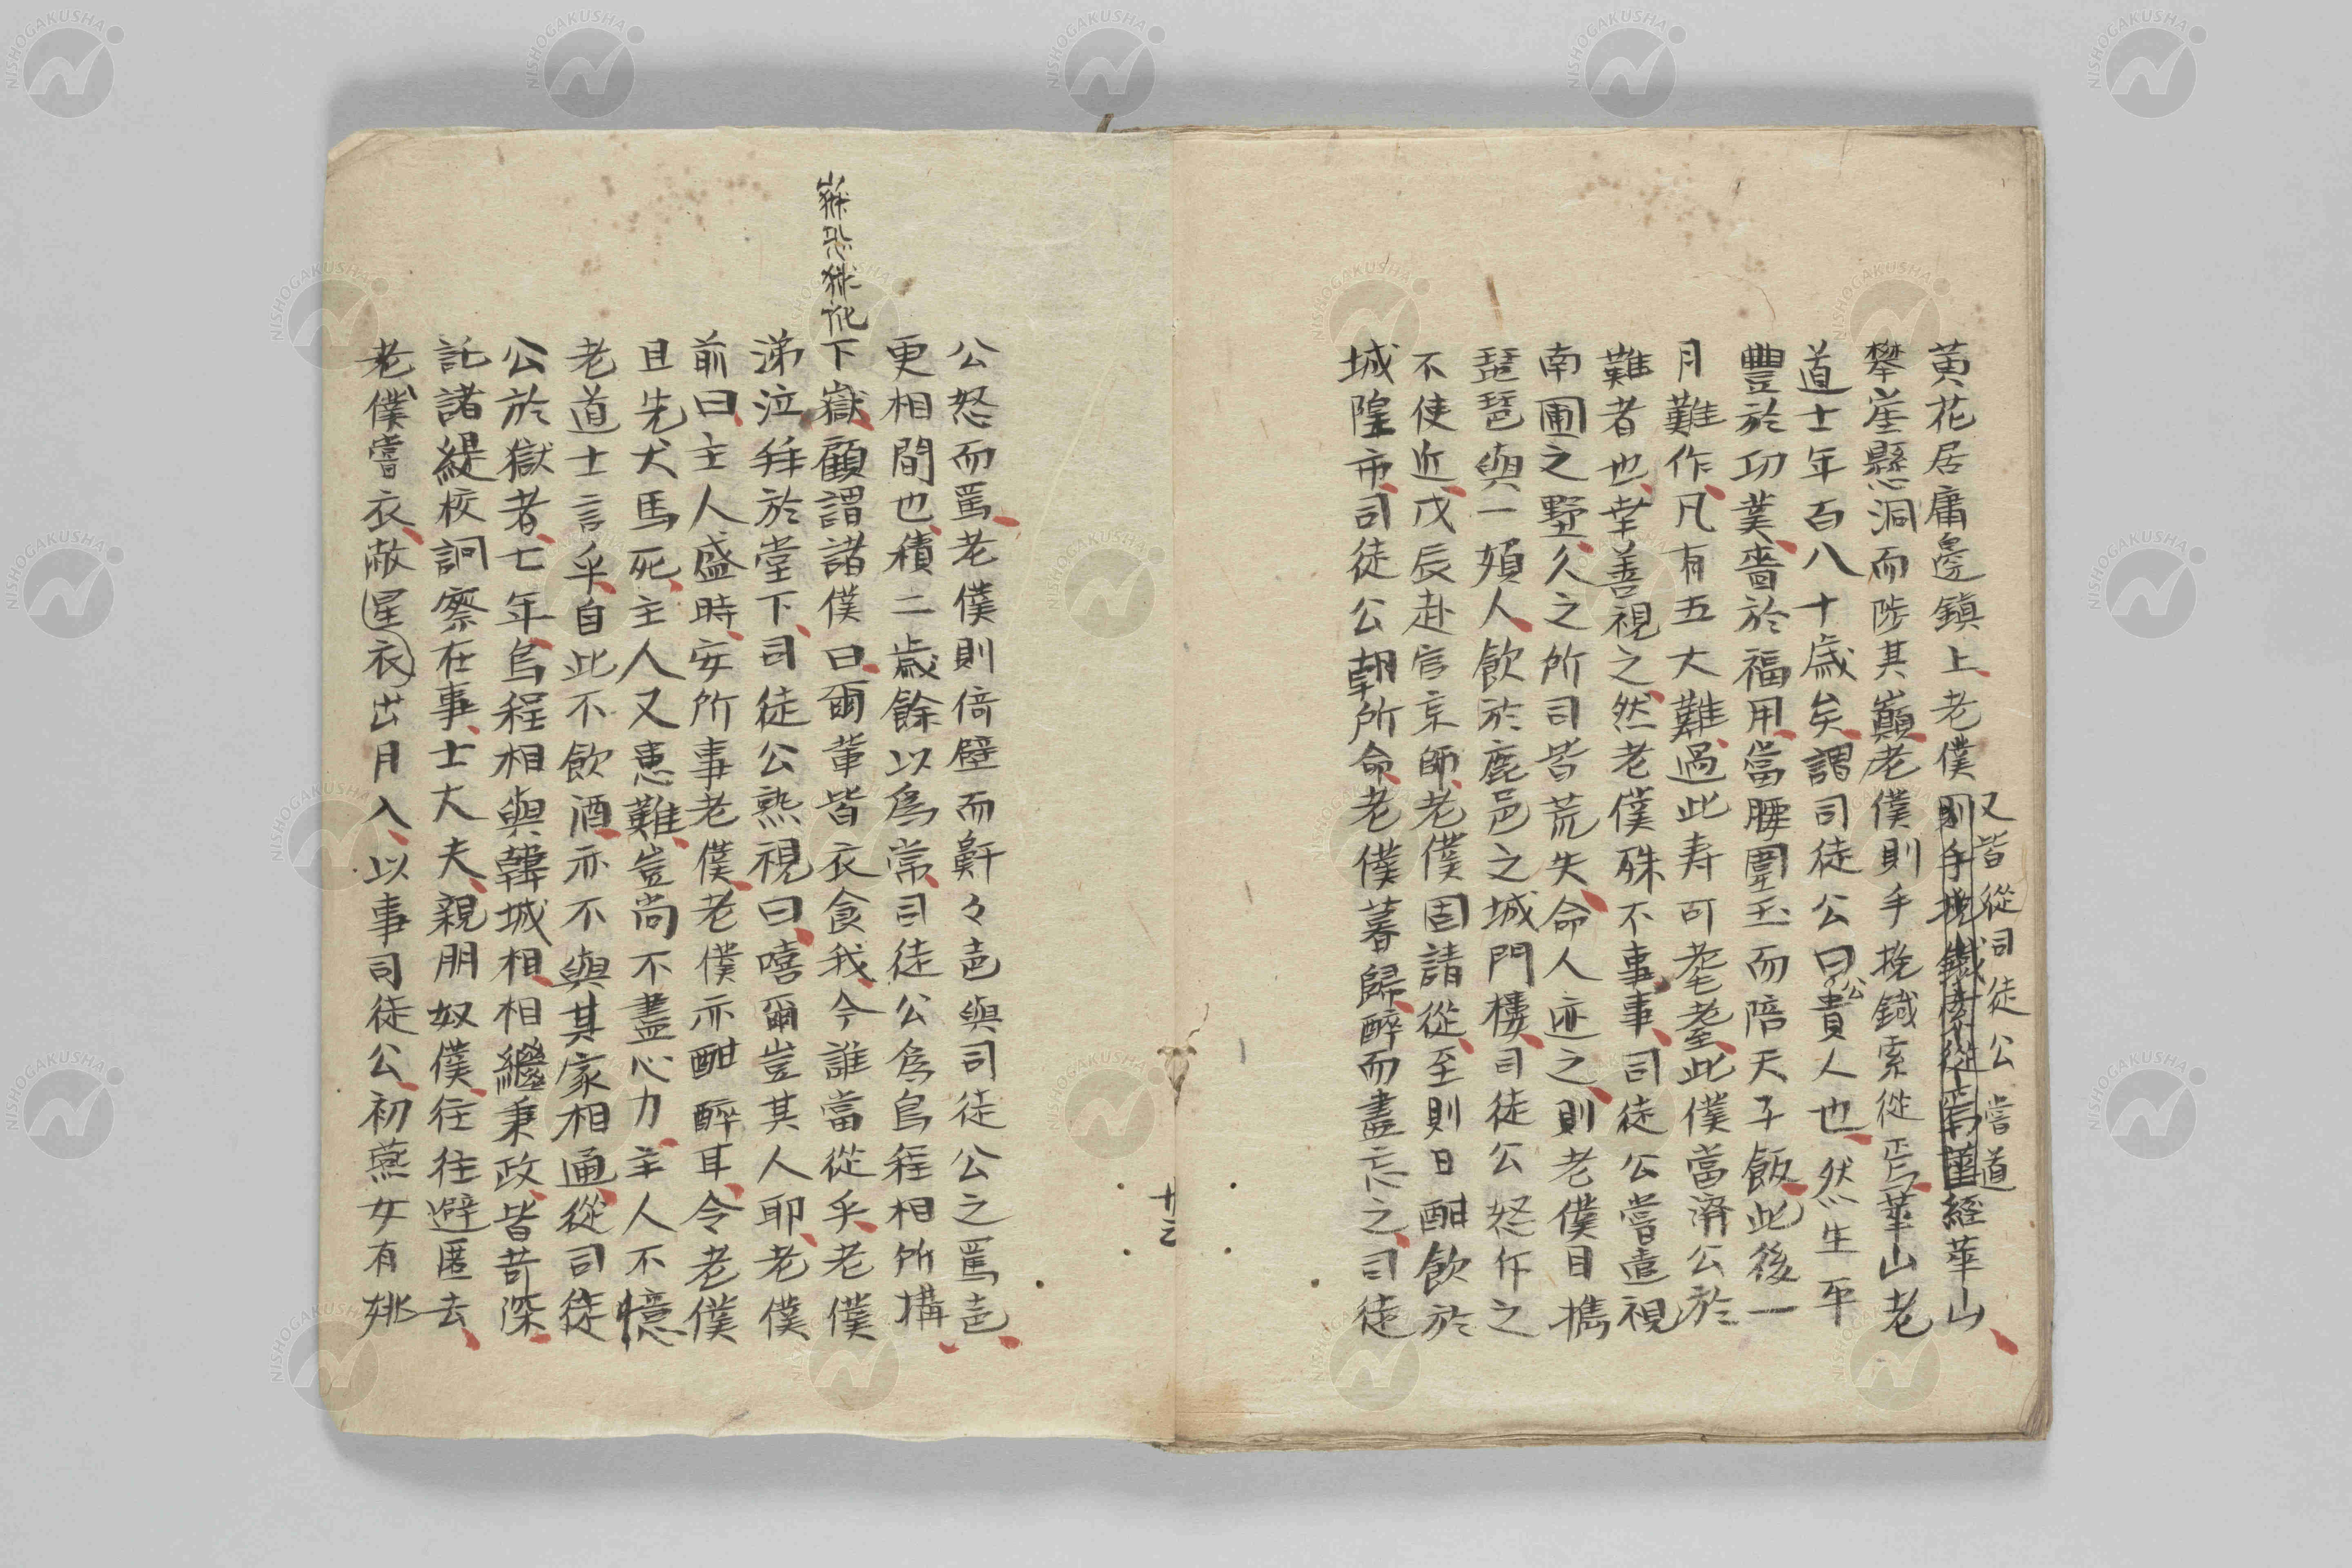 黄花居庸邊鎮上老僕則手挽鐵索從焉華經華山
又皆從司徒公嘗道
攀崖懸洞而陟其巔老僕則手挽鐵索從焉華山老
道士年百八十歳矣謂司徒公曰公貴人也然生平
豐於功業嗇於福用當腰圍玉而陪天子飯此後一
月難作凡有五大難過此寿可耄耋此僕當濟公於
難者也幸善視之然老僕殊不事事司徒公嘗遣視
南圃之墅久之所司皆荒失命人迹之則老僕日携
琵琶與一頬人飲於鹿邑之城門樓司徒公怒仆之
不使近戊辰赴官京師老僕固請從至則日酣飲於
城隍市司徒公朝所命老僕暮歸醉而盡忘之司徒
十三
公怒而罵老僕則倚壁而鼾々声與司徒公之罵声
更相間也積二歳餘以為常司徒公為烏程相所搆
下嶽顧謂諸僕曰爾輩皆衣食我今誰當從乎老僕
嶽恐獄訛
涕泣拜於堂下司徒公熟視曰嘻爾豈其人耶老僕
前曰主人盛時安所事老僕老僕亦酣醉耳令老僕
且先犬馬死主人又患難豈尚不盡心力主人不憶
老道士言乎自此不飲酒亦不與其家相通從司徒
公於獄者七年烏程相與韓城相相繼秉政皆苛深
託諸緹校詗察在事士大夫親朋奴僕往往避匿去
老僕嘗衣敝星衣出月入以事司徒公初燕女有姚
NISHOGAKUSHA